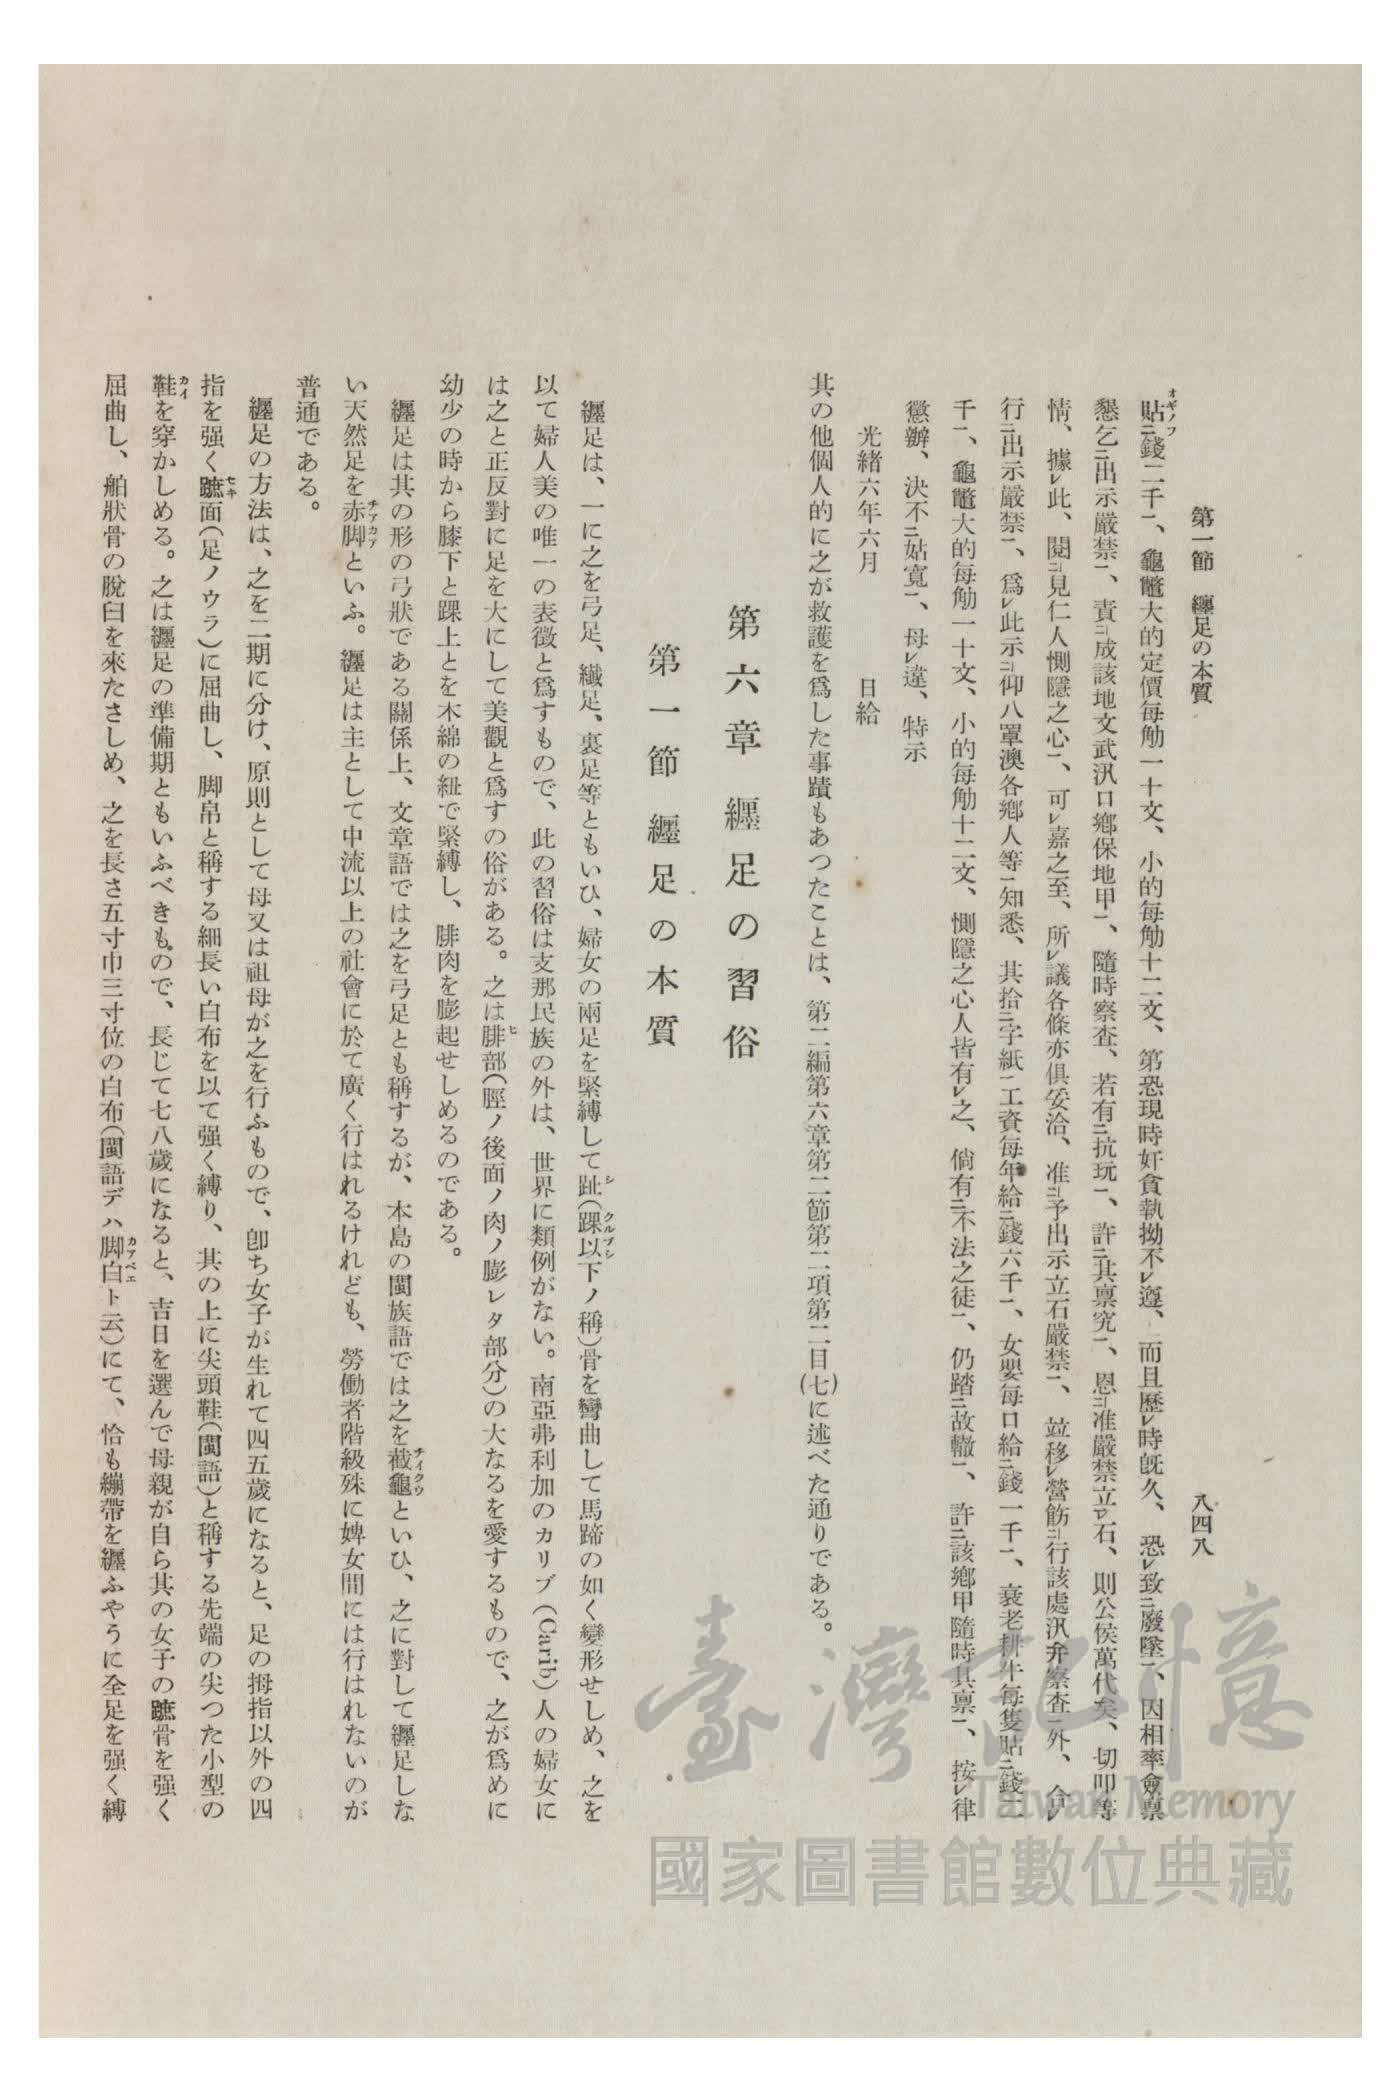 第一節　纒足の本質
八四八
貼ニ錢二千一、龜鼈大的定價每觔一十文、小的每觔十二文、第恐現時奸貪執拗不レ遵、而且歷レ時既久、恐レ致ニ廢墜一、因相率僉禀
懇乞ニ出示嚴禁一、責ニ成該地文武汛口鄉保地甲一、隨時察査、若有ニ抗玩一、許ニ其禀究一、恩ニ准嚴禁立レ石、則公侯萬代矣、切叩等
情、據レ此、閱ニ見仁人惻隱之心一、可レ嘉之至、所レ議各條亦俱妥洽、准ニ予出示立石嚴禁一、竝移レ營飭ニ行該處汛弁察査一外、合レ
行ニ出示嚴禁一、爲レ此示ニ仰八罩澳各鄉人等一知悉、其拾ニ字紙一工資每年給ニ錢六千一、女嬰每口給ニ錢一千一、衰老耕牛每隻貼ニ錢二
千一、龜鼈大的每觔一十文、小的每觔十二文、惻隱之心人皆有レ之、倘有ニ不法之徒一、仍踏ニ故轍一、許ニ該鄉甲隨時具禀一、按レ律
懲辦、決不ニ姑寬一、毋レ違、特示
光緒六年六月　　　日給
其の他個人的に之が救護を爲した事蹟もあつたことは、第二編第六章第二節第二項第二目(七)に述べた通りである。
第六章　纒足の習俗
第一節　纒足の本質
纒足は、一に之を弓足、纖足、裏足等ともいひ、婦女の兩足を緊縛して趾(踝以下ノ稱)骨を彎曲して馬蹄の如く變形せしめ、之を
以て婦人美の唯一の表徵と爲すもので、此の習俗は支那民族の外は、世界に類例がない。南亞弗利加のカリブ(Carib)人の婦女に
は之と正反對に足を大にして美觀と爲すの俗がある。之は腓部(脛ノ後面ノ肉ノ膨レタ部分)の大なるを愛するもので、之が爲めに
幼少の時から膝下と踝上とを木綿の紐で緊縛し、腓肉を膨起せしめるのである。
纒足は其の形の弓狀である關係上、文章語では之を弓足とも稱するが、本島の閩族語では之を截龜といひ、之に對して纒足しな
い天然足を赤脚といふ。纒足は主として中流以上の社會に於て廣く行はれるけれども、勞働者階級殊に婢女間には行はれないのが
普通である。
纒足の方法は、之を二期に分け、原則として母又は祖母が之を行ふもので、卽ち女子が生れて四五歲になると、足の拇指以外の四
指を强く蹠面(足ノウラ)に屈曲し、脚帛と稱する細長い白布を以て强く縛り、其の上に尖頭鞋(閩語)と稱する先端の尖つた小型の
鞋を穿かしめる。之は纒足の準備期ともいふべきもので、長じて七八歲になると、吉日を選んで母親が自ら其の女子の蹠骨を强く
屈曲し、舶狀骨の脫臼を來たさしめ、之を長さ五寸巾三寸位の白布(閩語デハ脚白ト云)にて、恰も繃帶を纒ふやうに全足を强く縛
臺灣記憶
Taiwan Memory
國家圖書館數位典藏